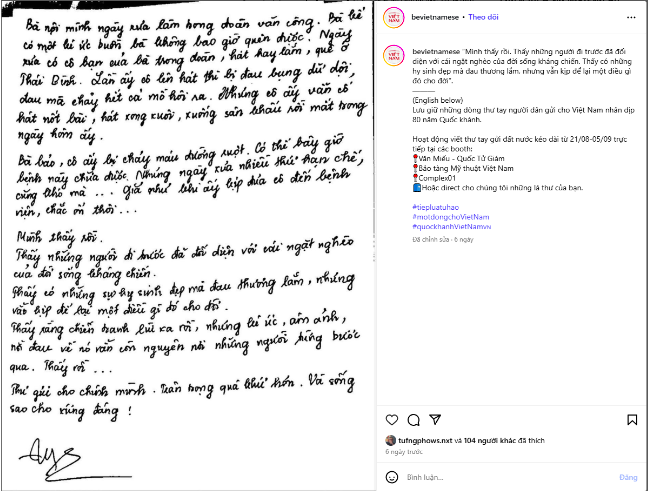 Bà nội mình ngày xưa làm trong đoàn văn công. Bà kể
có một kí ức buồn, bà không bao giờ quên được. Ngày
xưa có cô bạn của bà trong đoàn, hát hay lắm, quê ở
Thái Bình. Lần ấy cô lên hát thì bị đau bụng dữ dội,
đau mà chảy hết cả mồ hôi ra. Nhưng cô ấy vẫn cố
hát nốt bài, hát xong xuôi, xuống sân khấu rồi mất trong
ngày hôm ấy.
Bà bảo, cô ấy bị chảy máu đường ruột. Có thể bây giờ
bệnh này chữa được. Nhưng ngày xưa nhiều thứ hạn chế,
cũng khó mà ... Giá như khi ấy kịp đưa cô đến bệnh
viện, chắc ổn thôi ...
Mình thấy rồi.
Thấy những người đi trước đã đối diện với cái ngặt nghèo
của đời sống kháng chiến.
Thấy có những sự hy sinh đẹp mà đau thương lắm, nhưng
vẫn kịp để lại một điều gì đó cho đời.
Thấy rằng chiến tranh lùi xa rồi, nhưng kí ức, ám ảnh,
nỗi đau về nó vẫn còn nguyên nơi những người từng bước
qua. Thấy rồi ...
Thư gửi cho chính mình. Trân trọng quá khứ hơn. Và sống
sao cho xứng đáng !
VIỆT NAM
bevietnamese • Theo dõi
VIỆT NAM
bevietnamese "Mình thấy rồi. Thấy những người đi trước đã đối
diện với cái ngặt nghèo của đời sống kháng chiến. Thấy có những sự
hy sinh đẹp mà đau thương lắm, nhưng vẫn kịp để lại một điều gì
đó cho đời".
(English below)
Lưu giữ những dòng thư tay người dân gửi cho Việt Nam nhân dịp
80 năm Quốc khánh.
Hoạt động viết thư tay gửi đất nước kéo dài từ 21/08-05/09 trực
tiếp tại các booth:
📍Văn Miếu - Quốc Tử Giám
📍Bảo tàng Mỹ thuật Việt Nam
📍Complex01
📮Hoặc direct cho chúng tôi những lá thư của bạn.
#tiepluatuhao
#motdongchoVietNam
#quockhanhVietNamVN
Đã chỉnh sửa • 6 ngày
tufngphows.nxt và 104 người khác đã thích
6 ngày trước
Bình luận...
Đăng